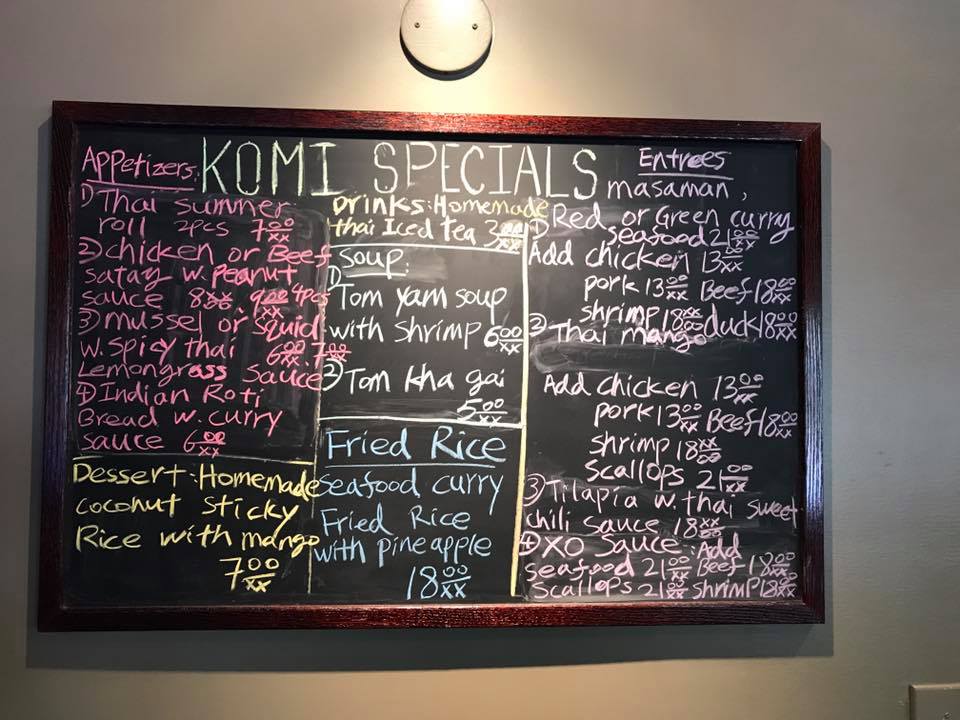 KOMI SPECIALS
Appetizers:
1) Thai summer
roll 2pcs 7 00/xx
2) chicken or Beef
satay w. peanut
sauce 8 xx/00 9 00/xx 4pcs
3) mussel or squid
w. spicy thai 6 00/xx 7 00/xx
Lemongrass sauce
4) Indian Roti
Bread w. curry
sauce 6 00/xx
Dessert: Homemade
coconut sticky
Rice with mango
7 00/xx
Drinks: Homemade
thai Iced tea 3 00/xx
Soup:
1)
Tom yam soup
with shrimp 6 00/xx
2) Tom kha gai
5 00/xx
Fried Rice
seafood curry
Fried Rice
with pineapple
18 00/xx
Entrees
masaman,
1) Red or Green curry
seafood 21 00/xx
Add chicken 13 00/xx
pork 13 00/xx Beef 18 00/xx
shrimp 18 00/xx duck 18 00/xx
2) Thai mango
Add chicken 13 00/xx
pork 13 00/xx Beef 18 00/xx
shrimp 18 xx/00
scallops 21 00/xx
3) Tilapia w. thai sweet
chili sauce 18 xx/00
4) XO sauce: Add
seafood 21 00/xx Beef 18 00/xx
scallops 21 00/xx shrimp 18 00/xx